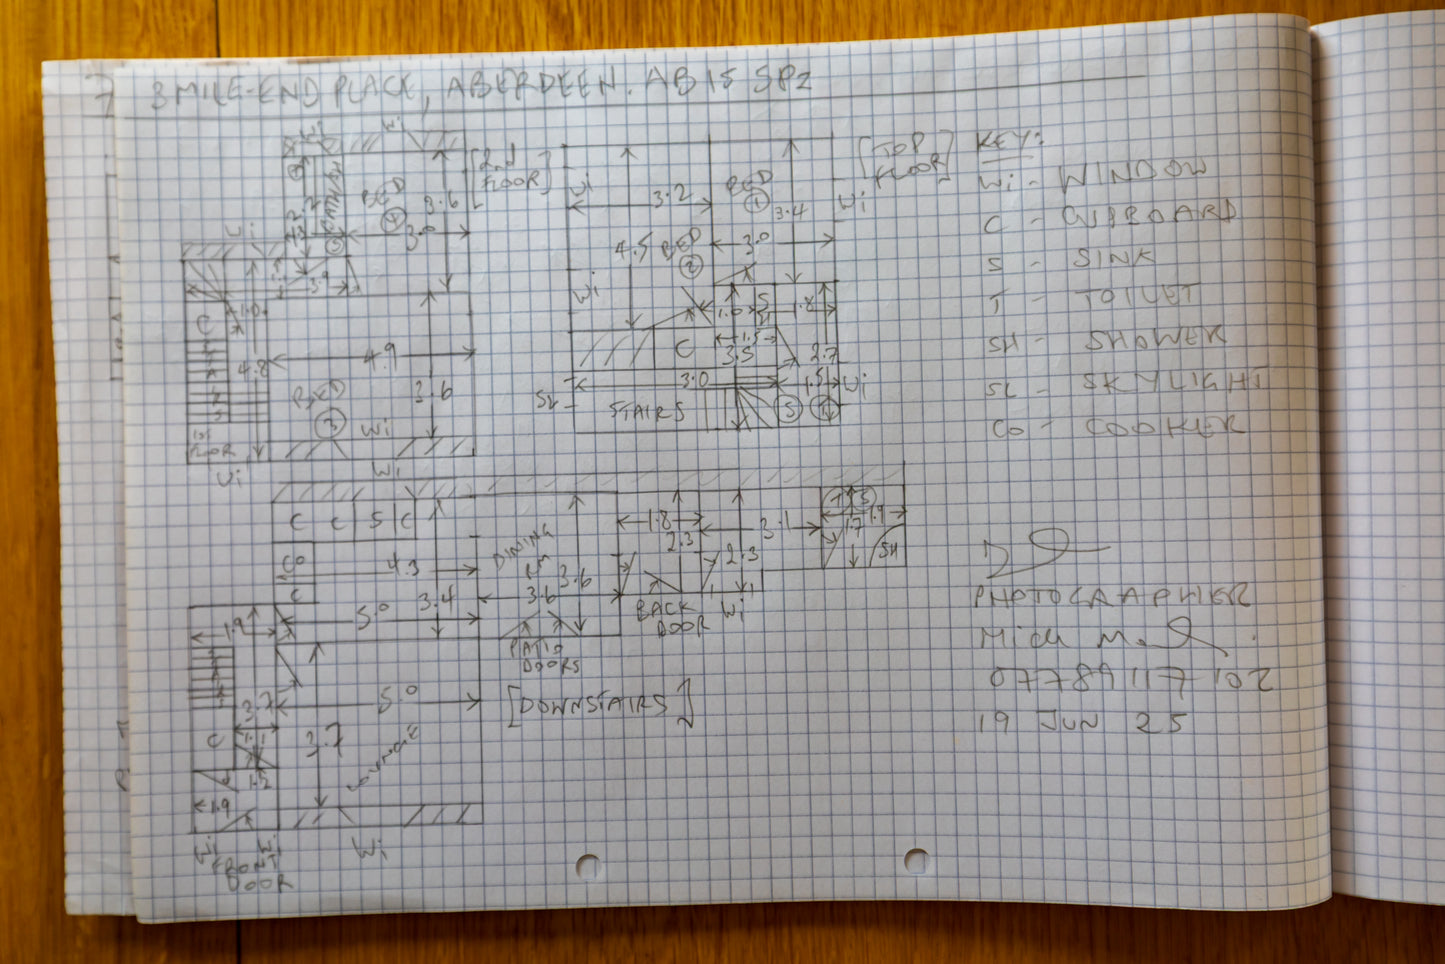 3 MILE-END PLACE, ABERDEEN. AB15 5PZ
[2nd FLOOR]
Wi
Wi
BATH/RM
BED
4
3.6
3.0
Wi
1.9
1.0
C
4.8
4.9
3.6
BED
3
Wi
1st FLOOR
Wi
Wi
[TOP FLOOR]
Wi
3.2
BED
1
3.4
Wi
4.5
BED
2
3.0
Wi
1.0
1.8
C
1.5
3.5
2.7
3.0
1.5
Wi
SL
STAIRS
S
KEY:
Wi - WINDOW
C - CUPBOARD
S - SINK
T - TOILET
SH - SHOWER
SL - SKYLIGHT
CO - COOKER
C C S C
CO
C
4.3
3.4
5.0
DINING RM
3.6
3.6
PATIO DOORS
1.8
2.3
BACK DOOR
2.3
Wi
3.1
T S
1.7
1.9
SH
1.9
3.7
5.0
3.7
LOUNGE
C
1.2
1.9
Wi
Wi
FRONT DOOR
Wi
[DOWNSTAIRS]
PHOTOGRAPHER
07789 117 102
19 JUN 25